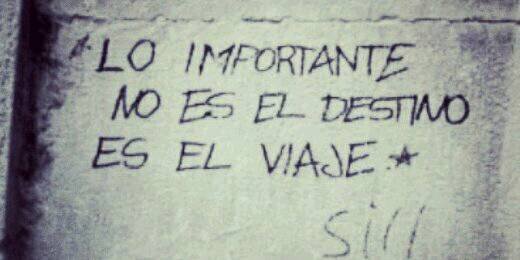 LO IMPORTANTE
NO ES EL DESTINO
ES EL VIAJE.★